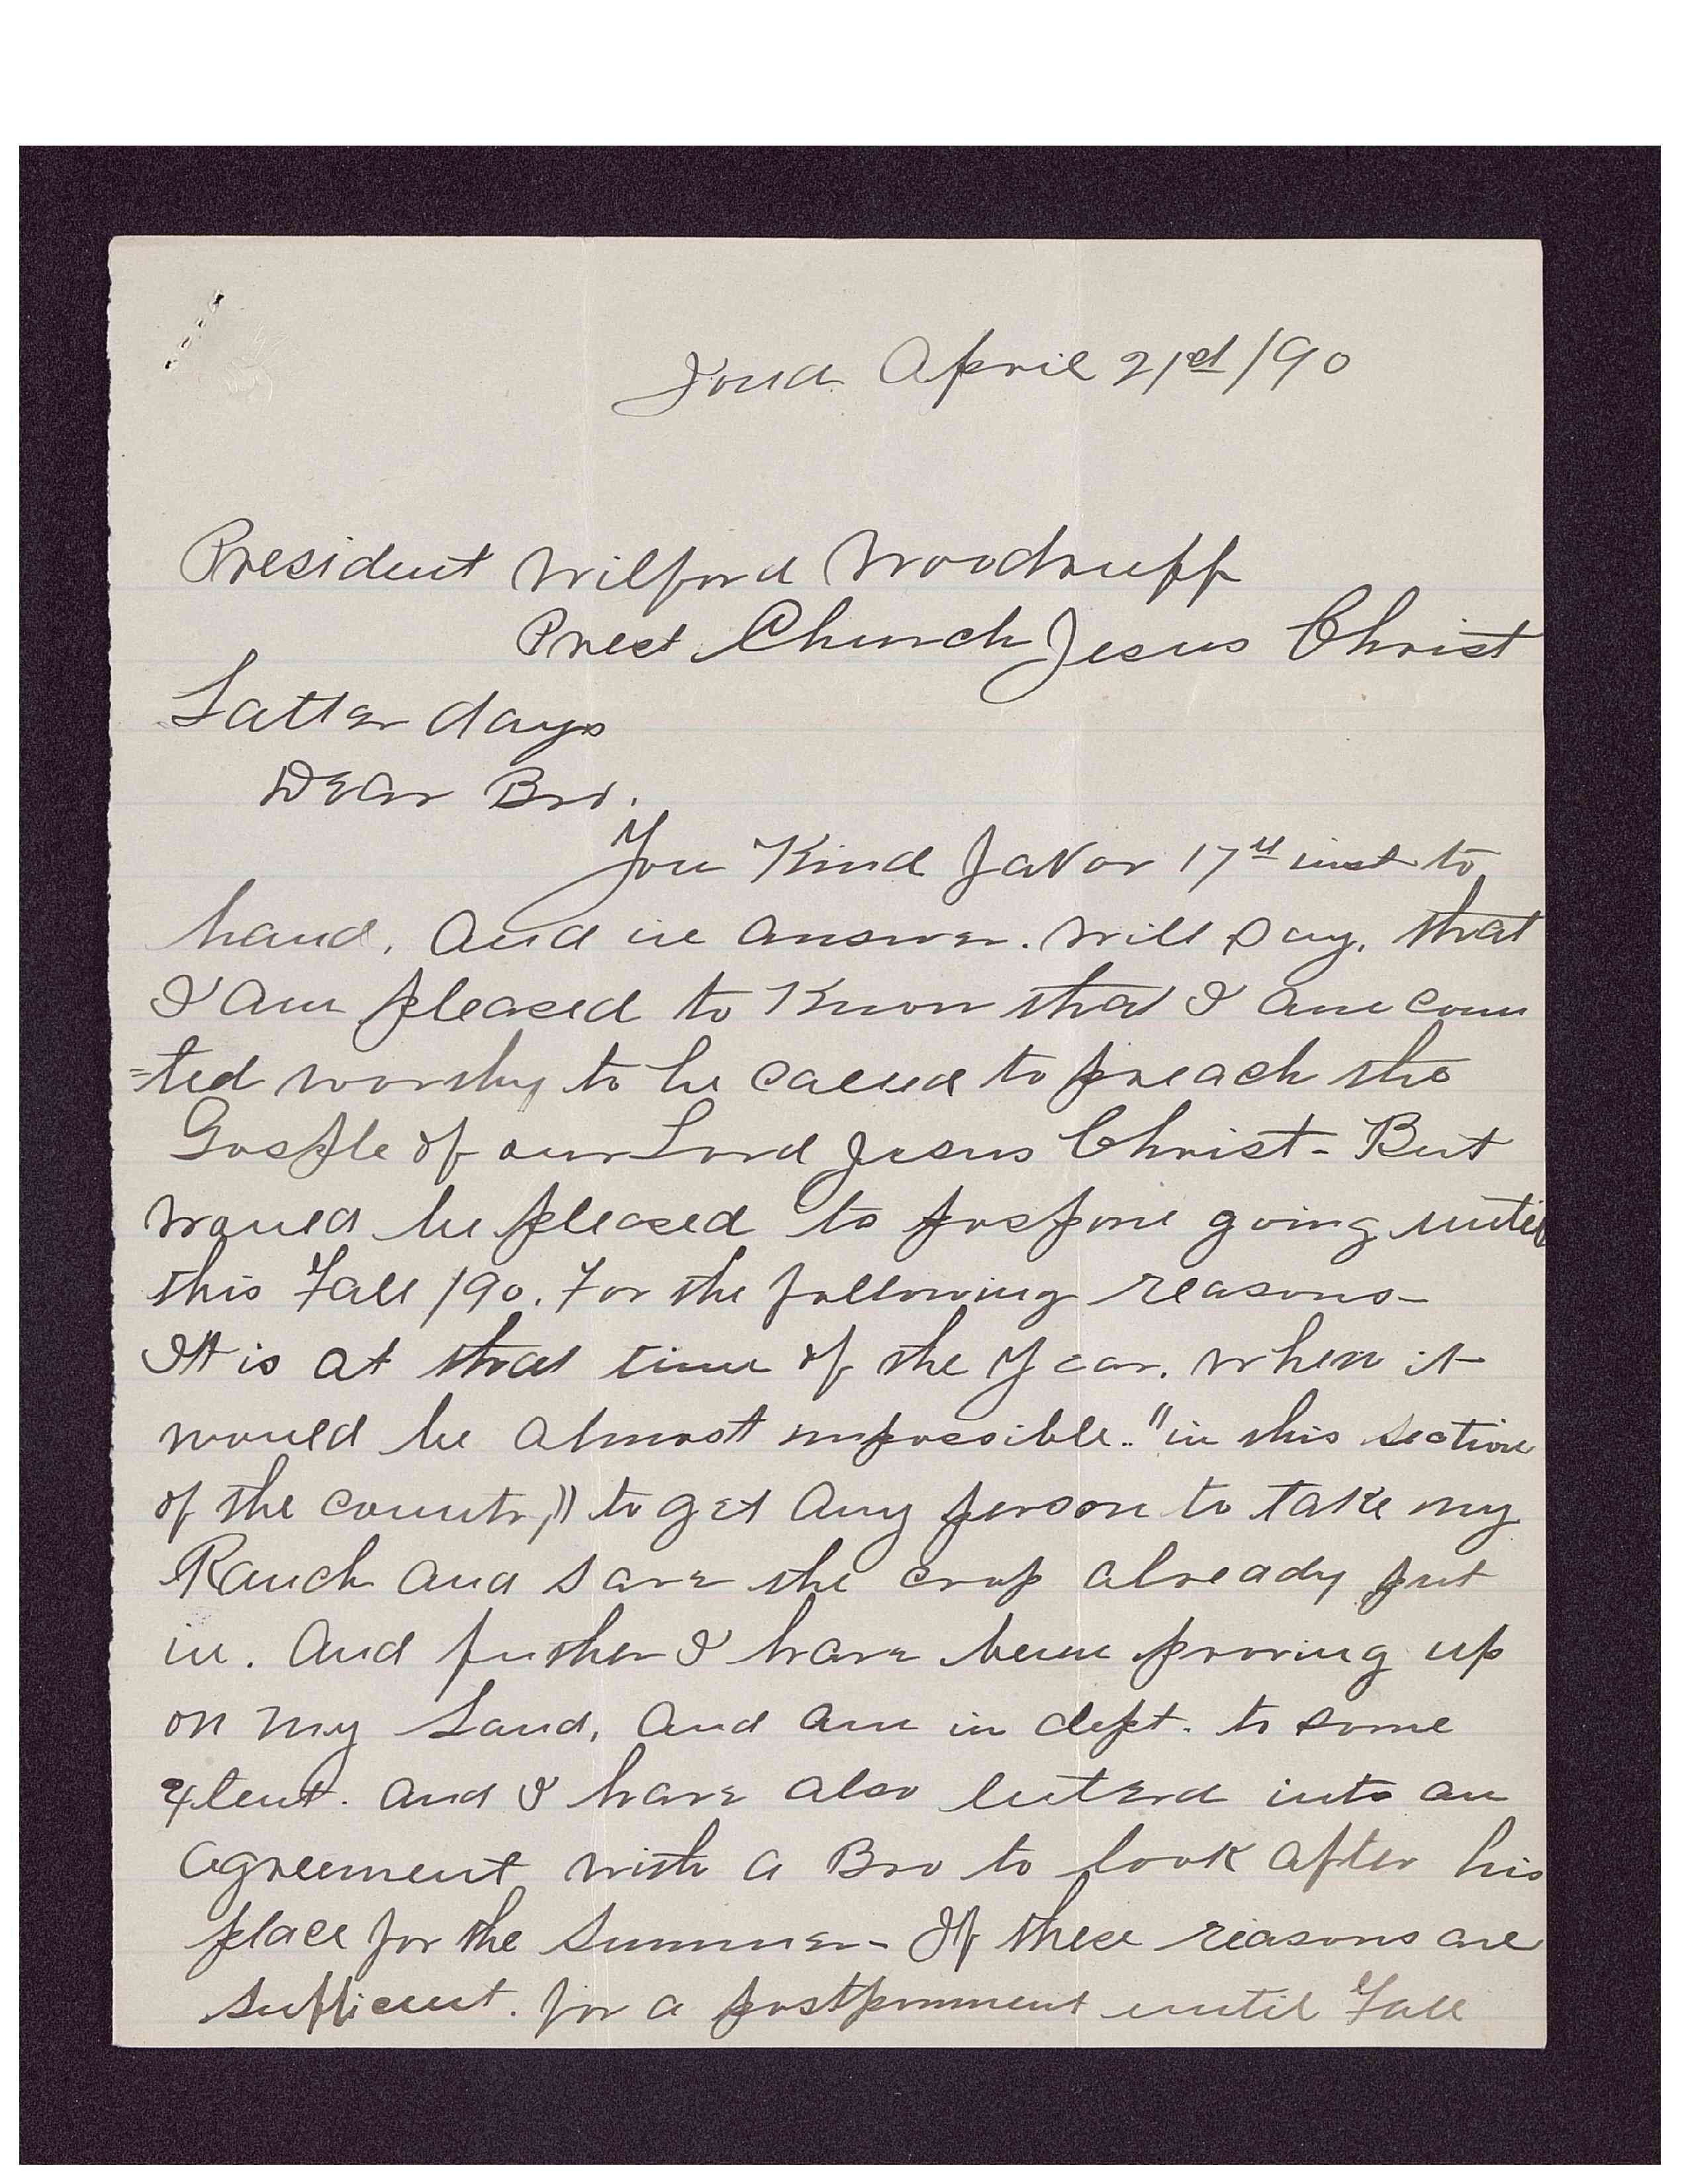 Iona April 21st /90
President Wilford Woodruff
Prest. Church Jesus Christ
Latter days
Dear Bro.
You Kind favor 17th inst to
hand, and in answer. will say, that
I am pleased to Know that I am coun
=ted worthy to be called to preach the
Gosple of our Lord Jesus Christ - But
would be pleased to pospone going until
this Fall /90. For the following reasons -
It is at that time of the Year. when it
would be almost impossible. "in this section
of the country" to get any person to take my
Ranch and save the crop already put
in. And futher I have been proving up
on my Land, and am in dept. to some
extent. and I have also enterd into an
agreement with a Bro to look after his
place for the Summer - If these reasons are
sufficient. for a postponment until Fall